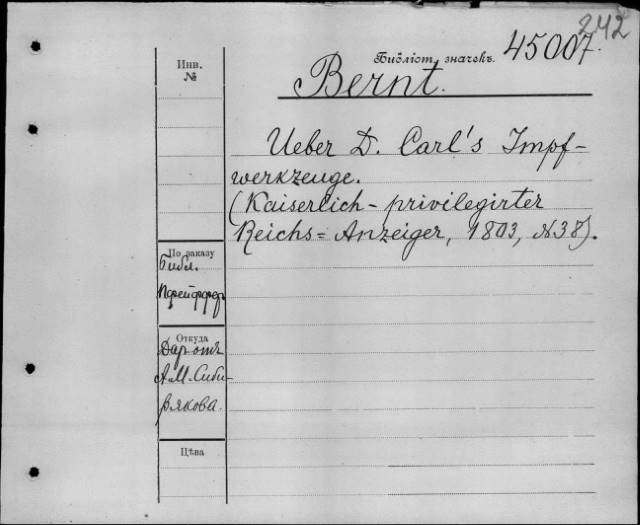 242
Библіот. значекъ. 45007.
Инв.
№
Bernt.
Ueber D. Carl's Impf-
werkzeuge.
(Kaiserlich-privilegirter
Reichs=Anzeiger, 1803, N38).
По заказу
Библ.
Пфейффер
Откуда
Даръ отъ
А.М. Сиби-
рякова.
Цѣна